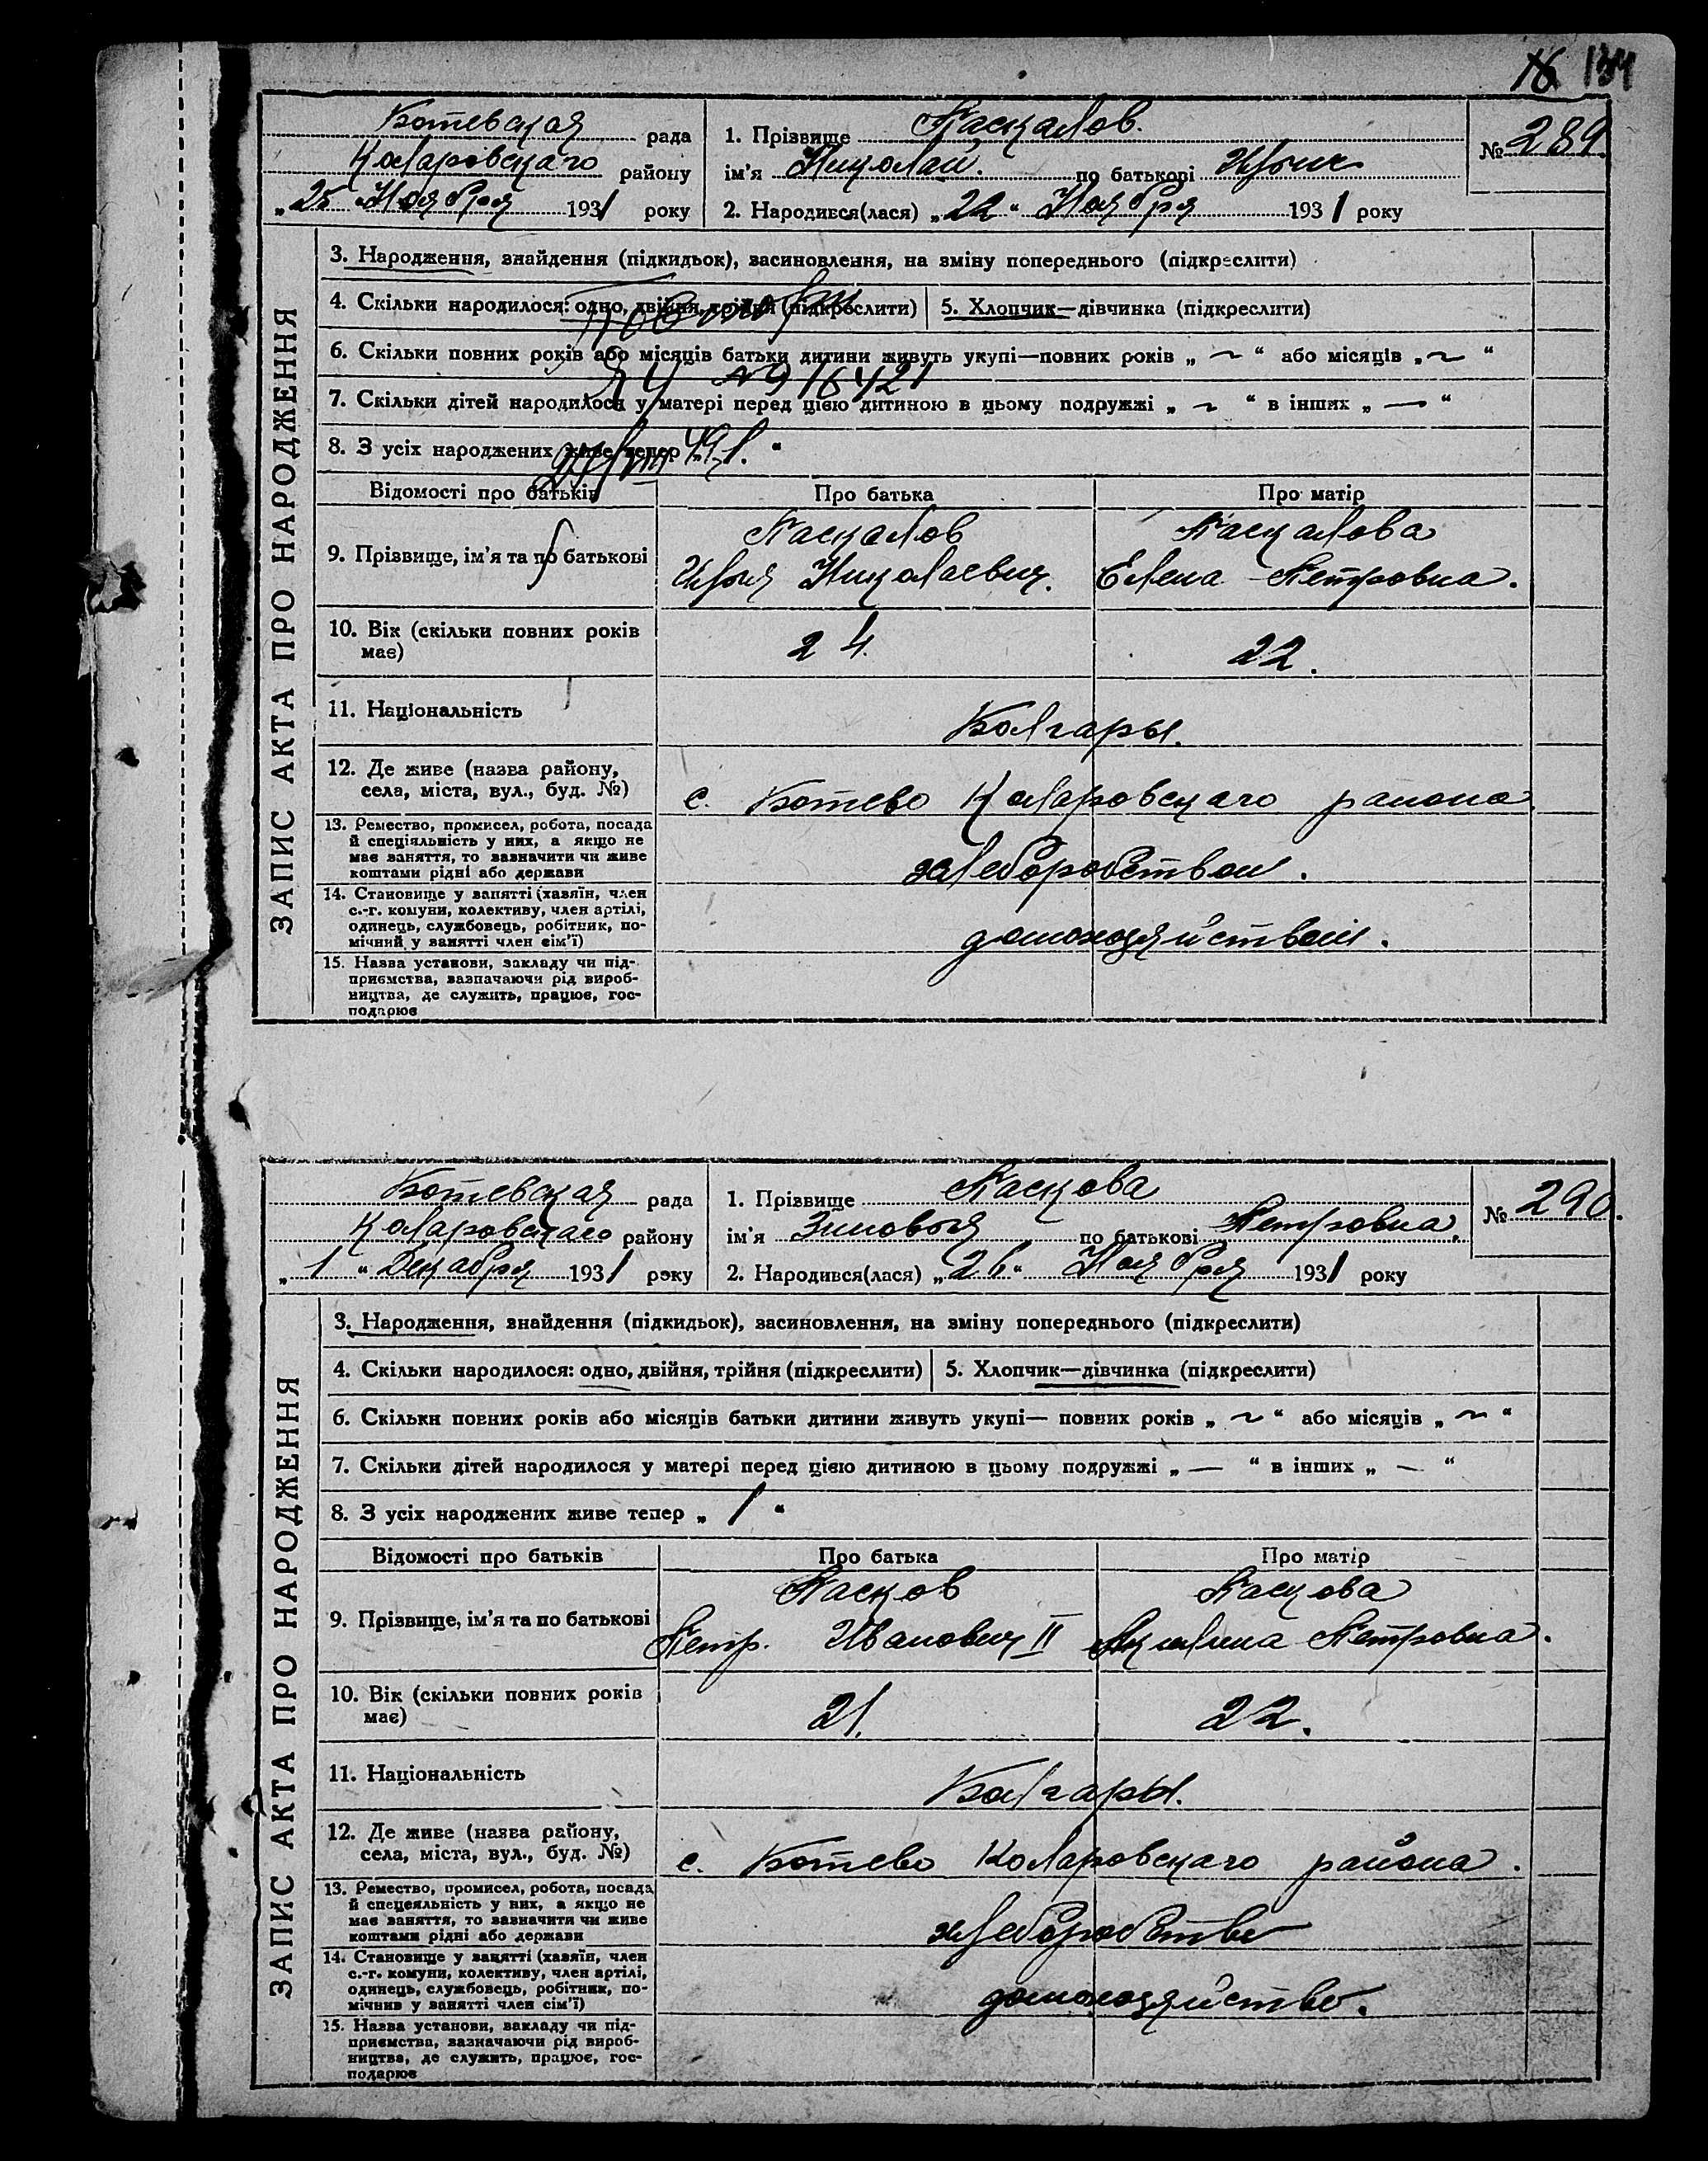 16 134
Ботевская рада
Коларовскаго району
„25 " Ноября 1931 року
1. Прізвище Паскалов.
ім'я Николай. по батькові Ильич
2. Народився(лася) „22" Ноября 1931 року
№ 289.
ЗАПИС АКТА ПРО НАРОДЖЕННЯ
3. Народження, знайдення (підкидьок), засиновлення, на зміну попереднього (підкреслити)
4. Скільки народилося: одно, двійня, трійня (підкреслити) 5. Хлопчик—дівчинка (підкреслити)
6. Скільки повних років або місяців батьки дитини живуть укупі—повних років „ ~ “ або місяців „ ~ “
ЯЧ №916421
7. Скільки дітей народилося у матері перед цією дитиною в цьому подружжі „ ~ “ в інших „ — “
8. З усіх народжених живе тепер „ “
49 г.
Відомості про батьків Про батька Про матір
9. Прізвище, ім'я та по батькові
Паскалов Паскалова
Илья Николаевич. Елена Петровна.
10. Вік (скільки повних років має) 24. 22.
11. Національність Болгары.
12. Де живе (назва району, села, міста, вул., буд. №) с. Ботево Коларовскаго района
13. Ремество, промисел, робота, посада
й спеціяльність у них, а якщо не
має заняття, то зазначити чи живе
коштами рідні або держави
хлеборобством.
14. Становище у занятті (хазяїн, член
с.-г. комуни, колективу, член артілі,
одинець, службовець, робітник, по-
мічний у занятті член сім'ї)
домохозяйством.
15. Назва установи, закладу чи під-
приємства, зазначаючи рід вироб-
ництва, де служить, працює, гос-
подарює
Ботевская рада
Коларовскаго району
„ 1 " Декабря 1931 року
1. Прізвище Паскова
ім'я Зиновья по батькові Петровна.
2. Народився(лася) „26" Ноября 1931 року
№ 290.
ЗАПИС АКТА ПРО НАРОДЖЕННЯ
3. Народження, знайдення (підкидьок), засиновлення, на зміну попереднього (підкреслити)
4. Скільки народилося: одно, двійня, трійня (підкреслити) 5. Хлопчик—дівчинка (підкреслити)
6. Скільки повних років або місяців батьки дитини живуть укупі— повних років „ ~ “ або місяців „ ~ “
7. Скільки дітей народилося у матері перед цією дитиною в цьому подружжі „ — “ в інших „ — “
8. З усіх народжених живе тепер „ 1 “
Відомості про батьків Про батька Про матір
9. Прізвище, ім'я та по батькові
Пасков Паскова
Петр. Иванович II Акилина Петровна.
10. Вік (скільки повних років має) 21. 22.
11. Національність Болгары.
12. Де живе (назва району, села, міста, вул., буд. №) с. Ботево Коларовскаго района.
13. Ремество, промисел, робота, посада
й спецеяльність у них, а якщо не
має заняття, то зазначити чи живе
коштами рідні або держави
хлеборобство
14. Становище у занятті (хазяїн, член
с.-г. комуни, колективу, член артілі,
одинець, службовець, робітник, по-
мічнив у занятті член сім'ї)
домохозяйство.
15. Назва установи, закладу чи під-
приємства, зазначаючи рід вироб-
ництва, де служить, працює, гос-
подарює